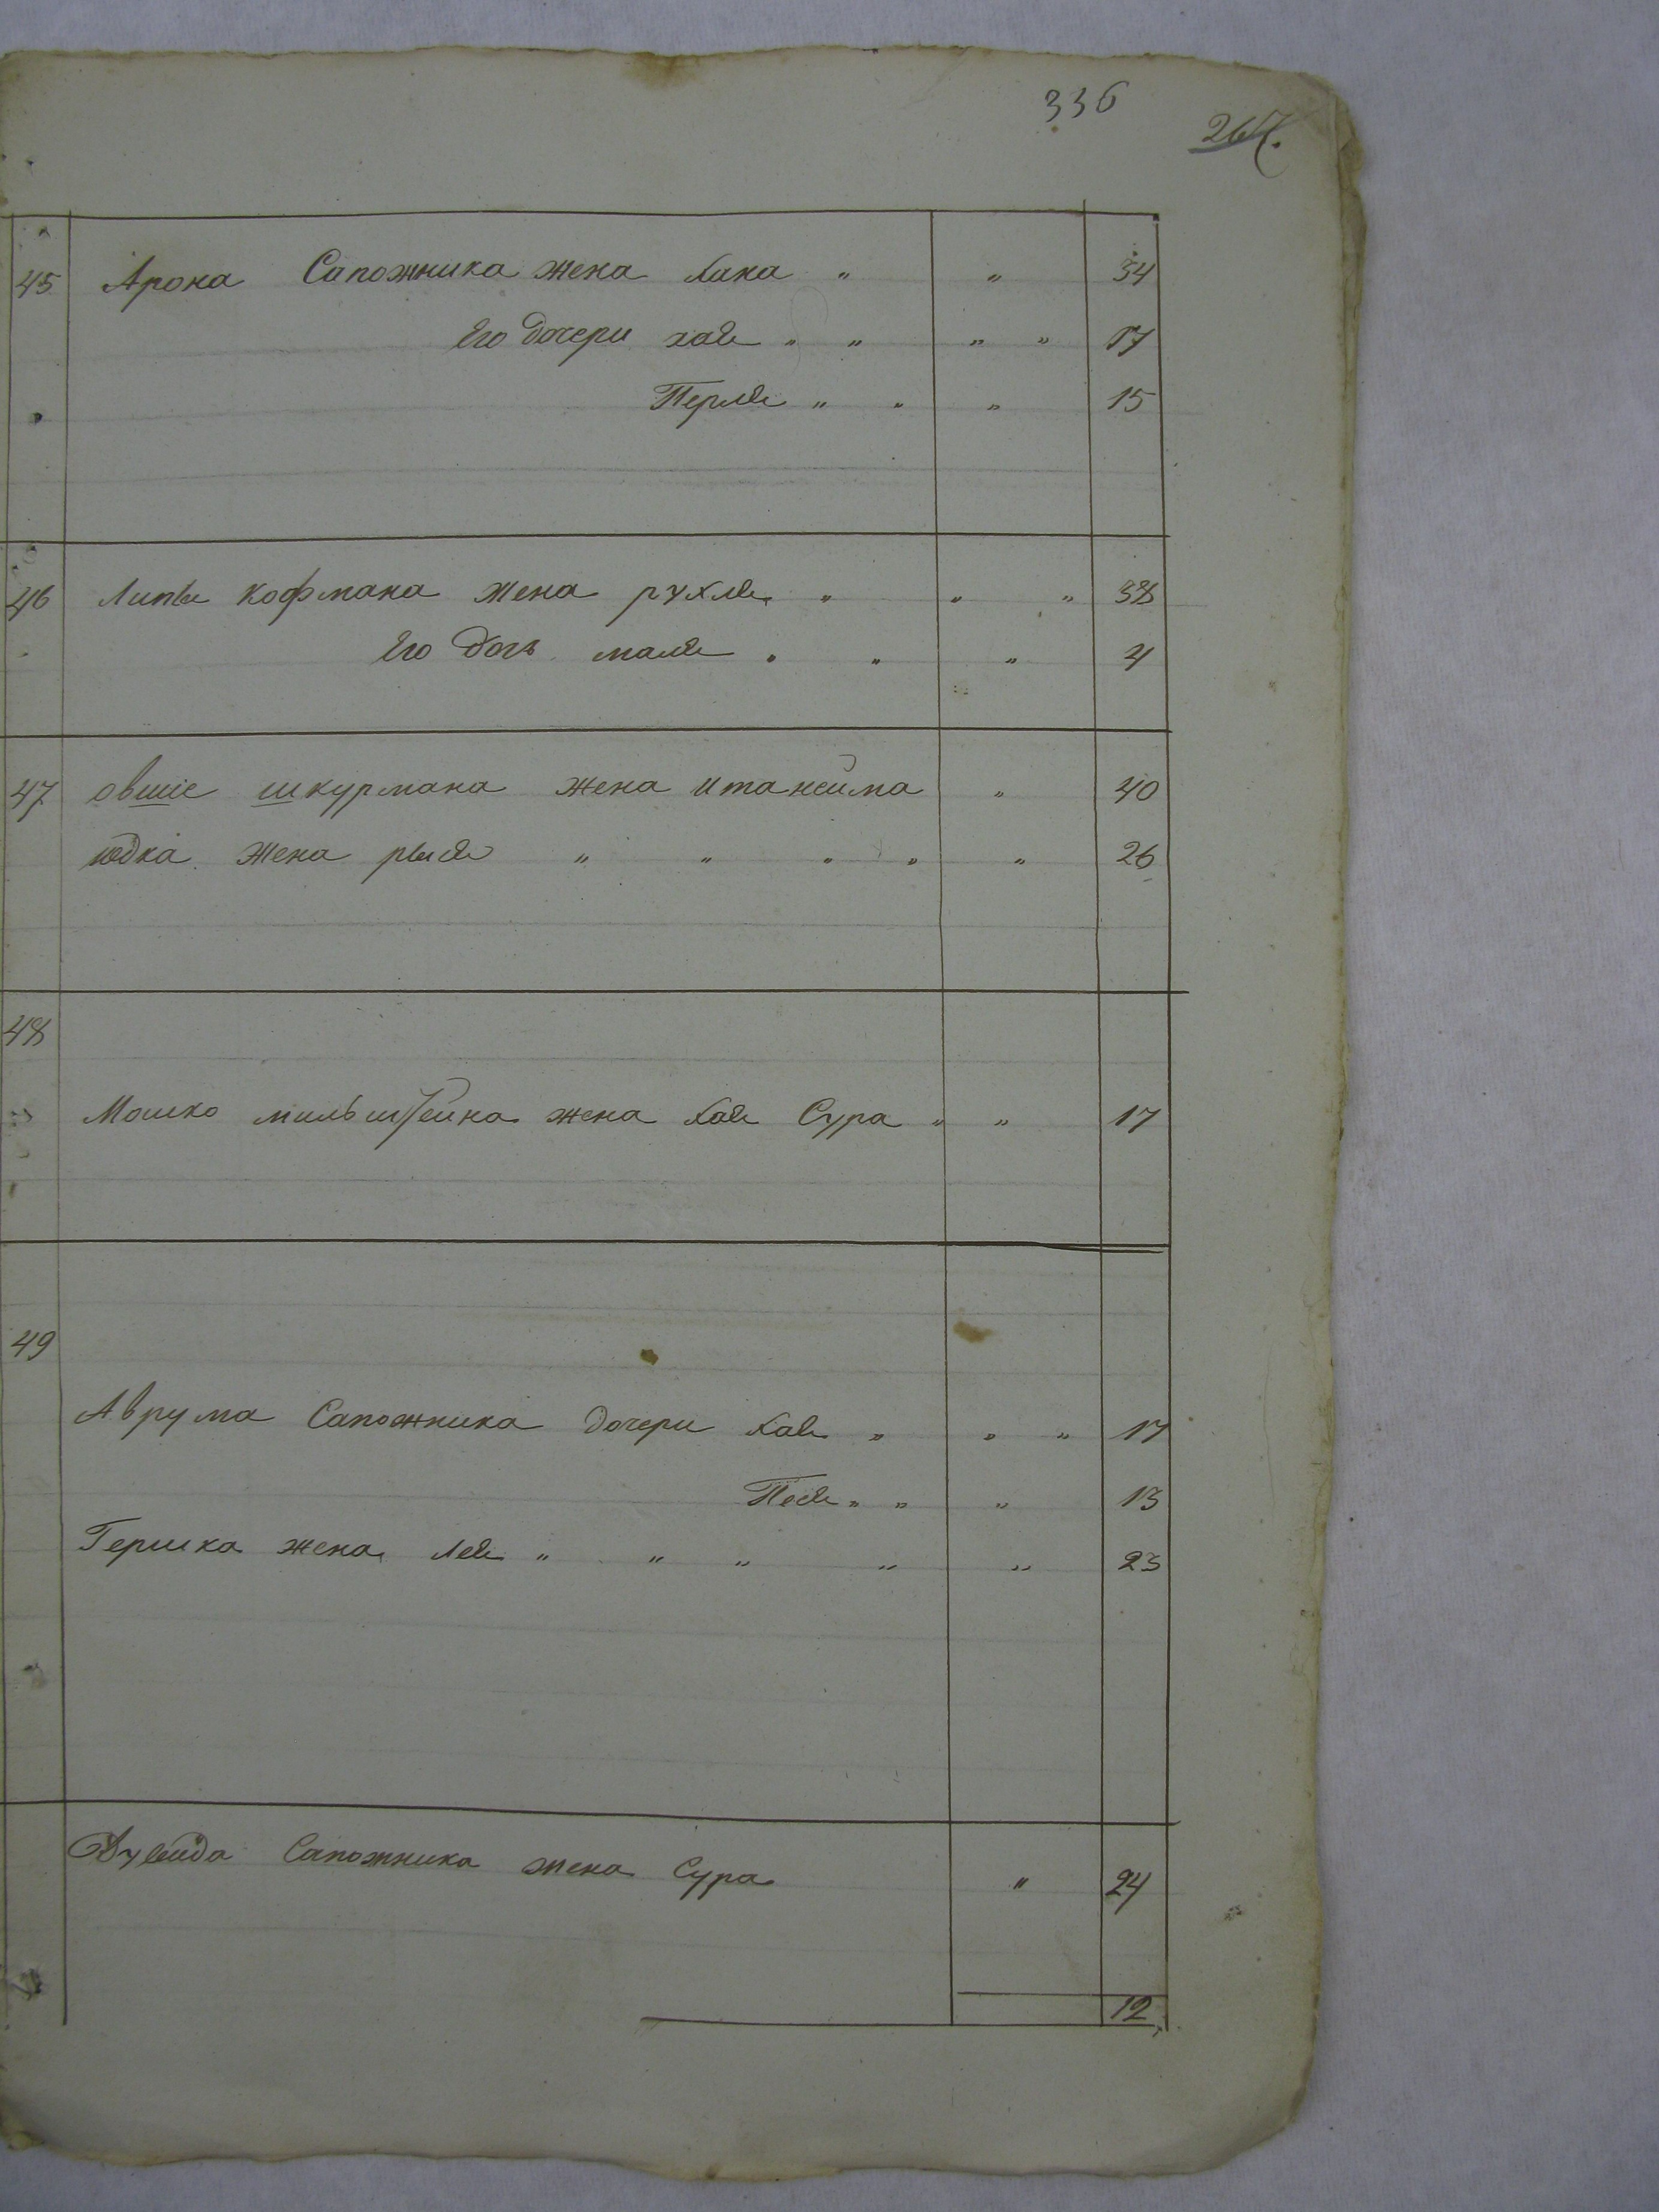 336
267.
45 Арона Сапожника жена Хана " " 34
Его дочери хая " " " " 17
Перля " " " 15
46 Липы кофмана жена рухля " " " 38
Его дочь маля " " " 4
47 овшіе шкурмана жена итанейма " 40
юдка жена рыся " " " " " 26
48
Мошко мильштейна жена Хая Сура " " 17
49
Аврума Сапожника дочери Хая " " " 17
Песя " " " 13
Гершка жена Лея " " " " " 23
Дувида Сапожника жена Сура " 24
12